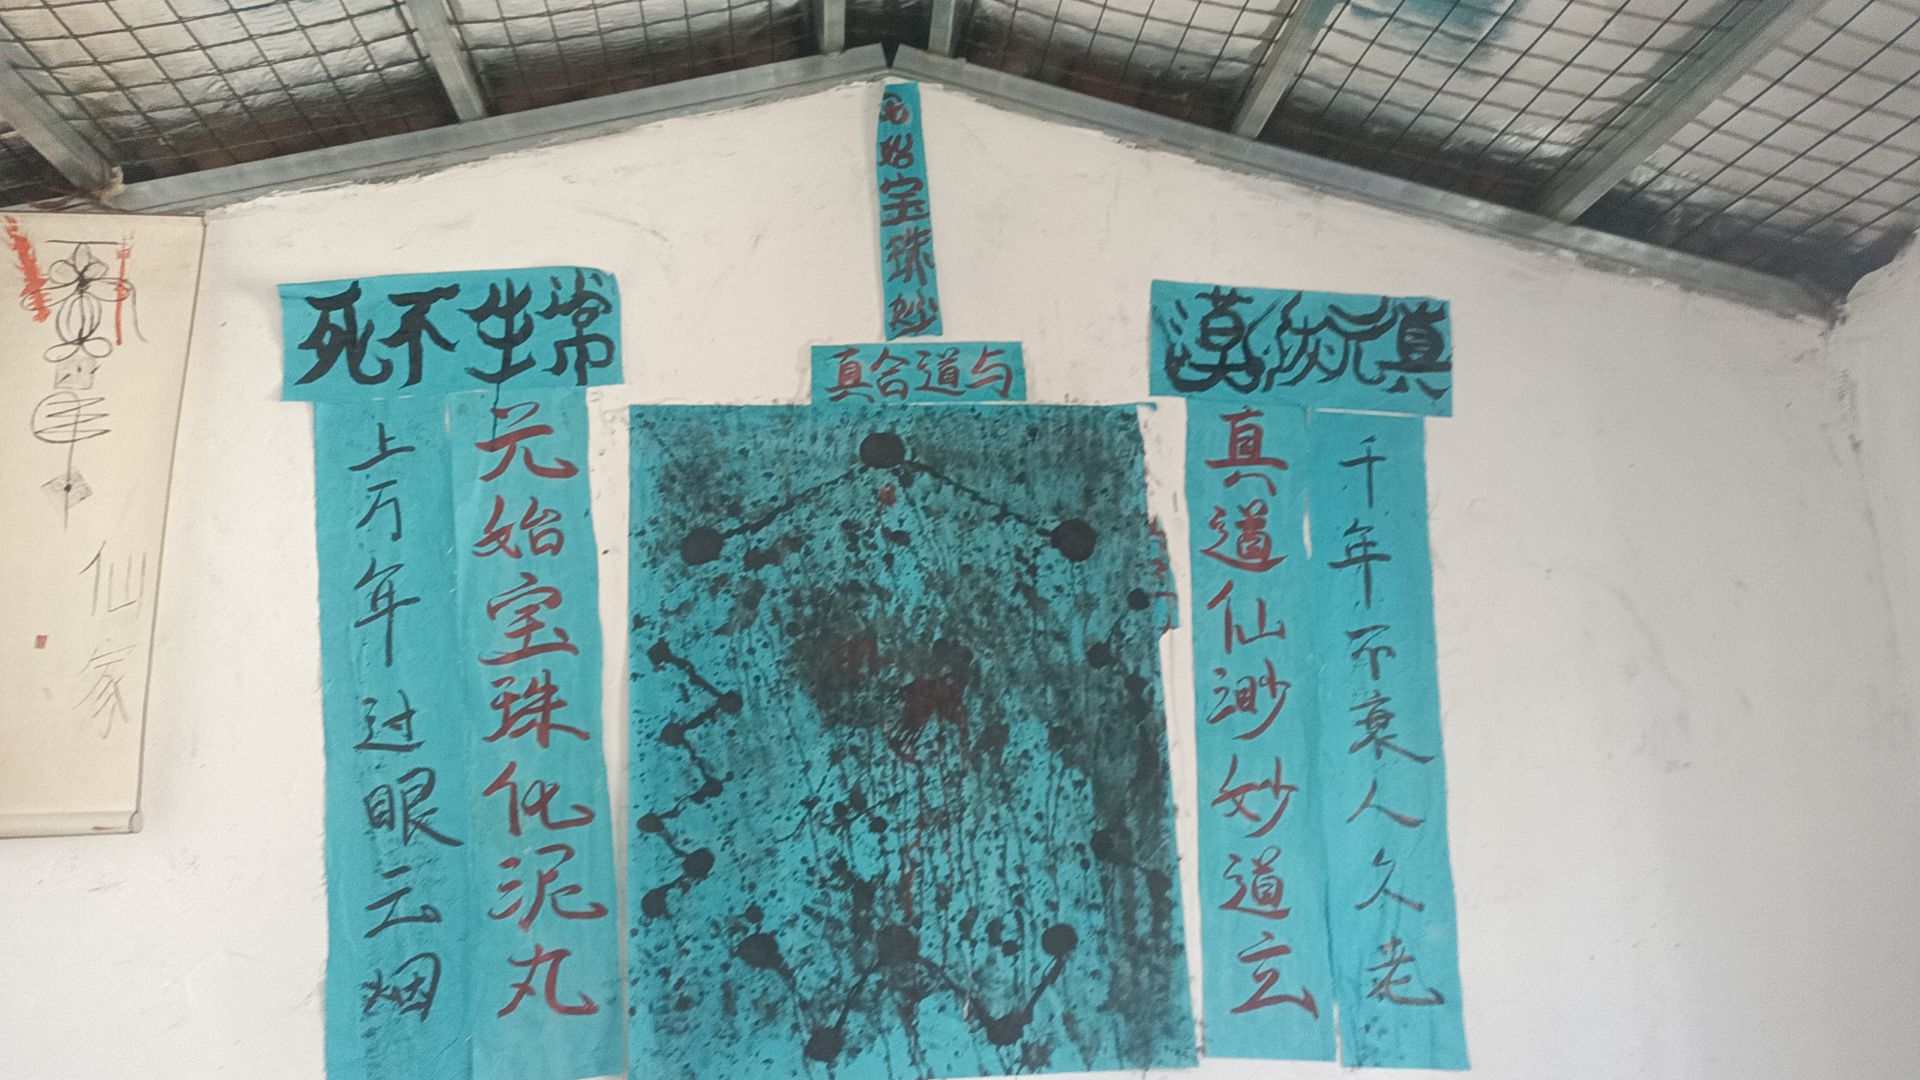 元始宝珠妙
与道合真
真元漠
千年不衰人久老
真道仙渺妙道立
常生不死
元始宝珠化泥丸
上万年过眼云烟
仙家